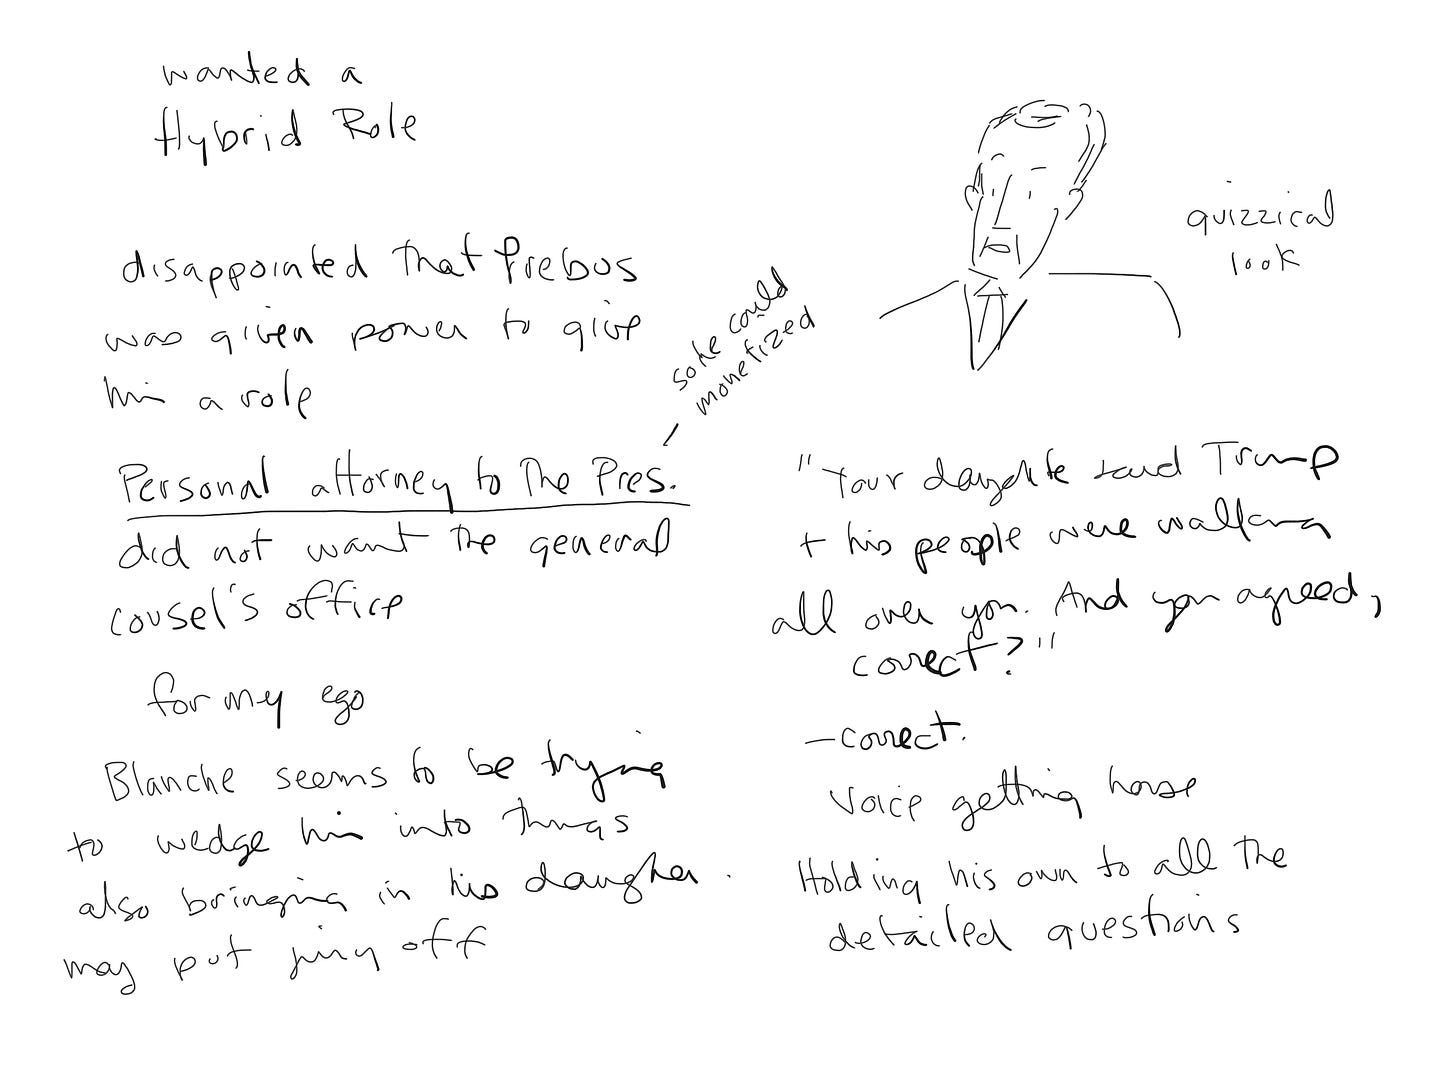 wanted a
Hybrid Role
disappointed that Prebus
was given power to give
him a role
so he could
monetized
Personal attorney to the Pres.
did not want the general
cousel's office
for my ego
Blanche seems to be trying
to wedge him into things
also bringing in his daughter.
may put jury off
quizzical
look
"Your daughter said Trump
+ his people were walking
all over you. And you agreed,
correct?"
- correct.
Voice getting horse
Holding his own to all the
detailed questions